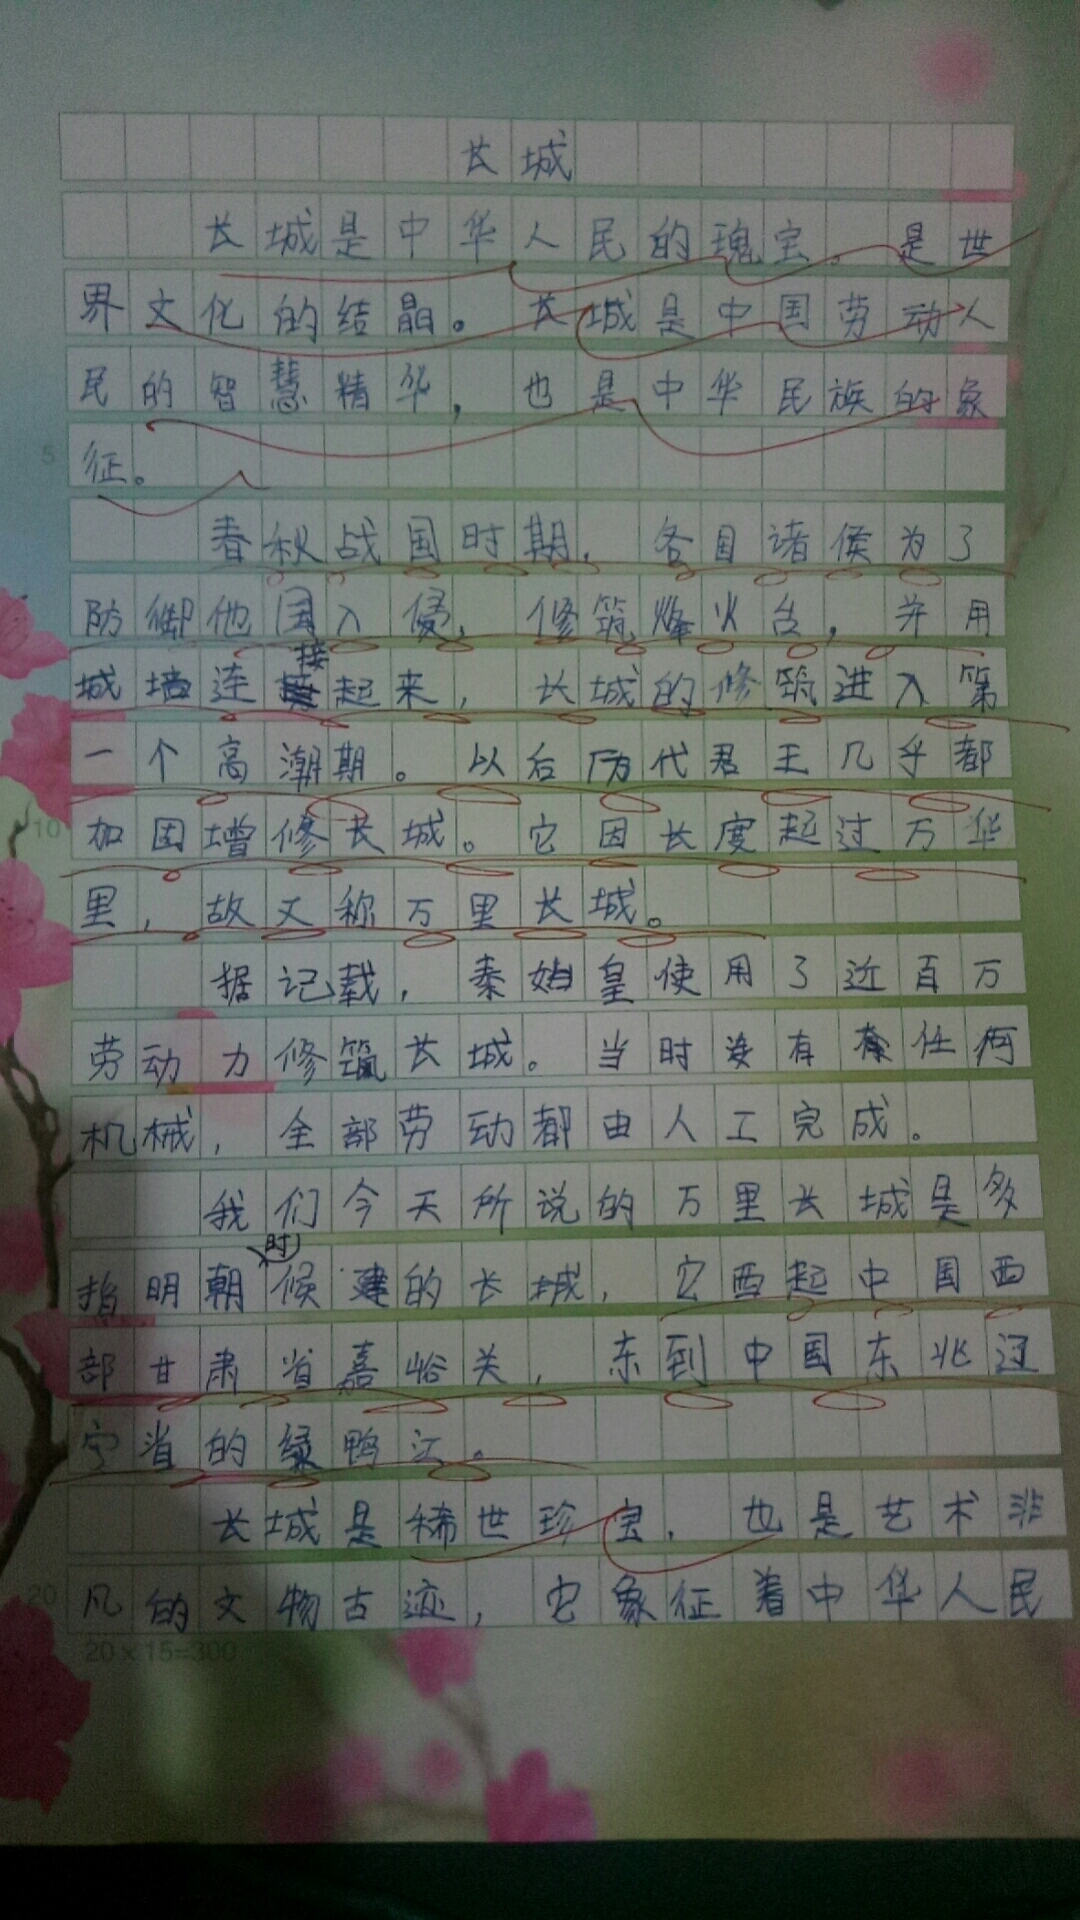 长城
长城是中华人民的瑰宝。是世
界文化的结晶。长城是中国劳动人
民的智慧精华，也是中华民族的象
5
征。
春秋战国时期，各国诸侯为了
防御他国入侵，修筑烽火台，并用
城墙连接起来，长城的修筑进入第
一个高潮期。以后历代君王几乎都
10
加固增修长城。它因长度起过万华
里，故又称万里长城。
据记载，秦始皇使用了近百万
劳动力修筑长城。当时没有任何
机械，全部劳动都由人工完成。
我们今天所说的万里长城是多
指明朝时候建的长城，它西起中国西
部甘肃省嘉峪关，东到中国东北辽
宁省的绿鸭江。
长城是稀世珍宝，也是艺术非
20
凡的文物古迹，它象征着中华人民
20×15=300